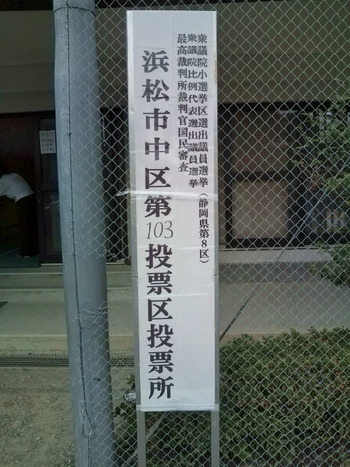 衆議院小選挙区選出議員選挙（静岡県第８区）
衆議院比例代表選出議員選挙
最高裁判所裁判官国民審査
浜松市中区第103投票区投票所